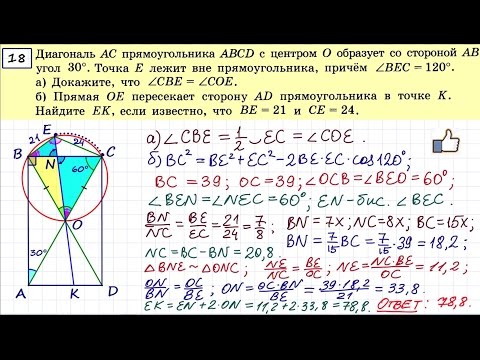 18
Диагональ AC прямоугольника ABCD с центром O образует со стороной AB
угол 30°. Точка E лежит вне прямоугольника, причём ∠BEC = 120°.
а) Докажите, что ∠CBE = ∠COE.
б) Прямая OE пересекает сторону AD прямоугольника в точке K.
Найдите EK, если известно, что BE = 21 и CE = 24.
E
21
24
B
N
C
60°
O
30°
A
K
D
а) ∠CBE = 1/2 ◡EC = ∠COE.
б) BC² = BE² + EC² − 2BE·EC·cos120°;
BC = 39; OC = 39; ∠OCB = ∠BEO = 60°;
∠BEN = ∠NEC = 60°; EN - бис. ∠BEC.
BN/NC = BE/EC = 21/24 = 7/8; BN = 7X; NC = 8X; BC = 15X;
BN = 7/15 BC = 7/15 · 39 = 18,2;
NC = BC − BN = 20,8.
△BNE ~ △ONC; NE/NC = BE/OC; NE = NC·BE/OC = 11,2;
ON/BN = OC/BE; ON = OC·BN/BE = 39·18,2/21 = 33,8.
EK = EN + 2·ON = 11,2 + 2·33,8 = 78,8. ОТВЕТ: 78,8.